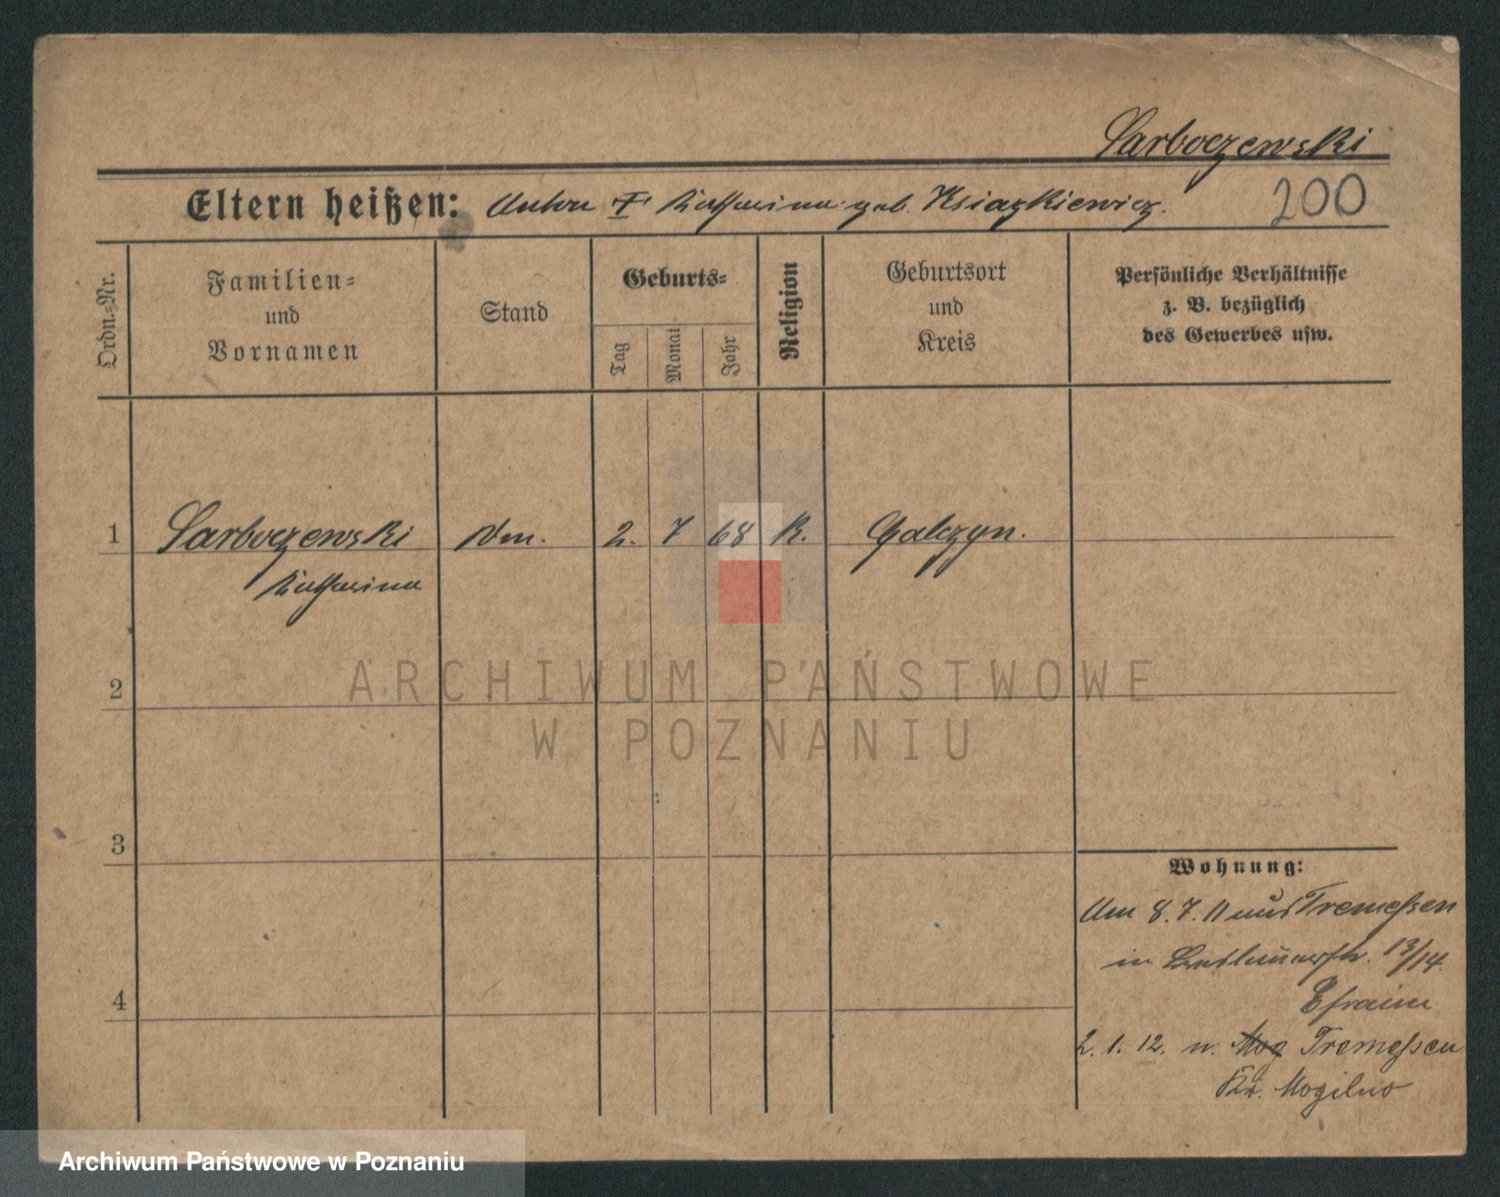 Sarboczewski
Eltern heißen: Anton u. Katharina geb. Ksiazkiewicz.
200
Ordn.-Nr.
Familien-
und
Vornamen
Stand
Geburts-
Tag
Monat
Jahr
Religion
Geburtsort
und
Kreis
Persönliche Verhältnisse
z. B. bezüglich
des Gewerbes usw.
1 Sarboczewski 2. 7 68 K. Galczyn.
Katharina
2
3
4
Wohnung:
Am 8. 7. 11 aus Tremeßen
in 13/14.
Efraim
2. 1. 12. n. Mog Tremeßen
Kr. Mogilno
ARCHIWUM PAŃSTWOWE
W POZNANIU
Archiwum Państwowe w Poznaniu